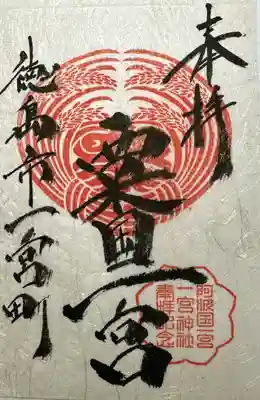 奉拝
粟国一宮
阿波国一宮
一宮神社
参拝記念
徳島市一宮町